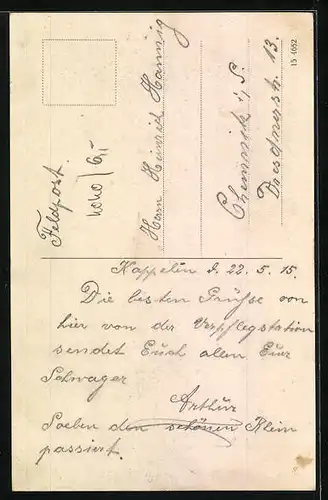 Feldpost.
Herrn Heinrich Hannig
Chemnitz i/S.
Dresdnerstr. 13.
15 4652
Kappelln d. 22. 5. 15.
Die besten Grühse von
hier von der Verpflegstation
sendet Euch allen Euer
Schwager
Arthur
Soeben den schönen Rhein
passiert.